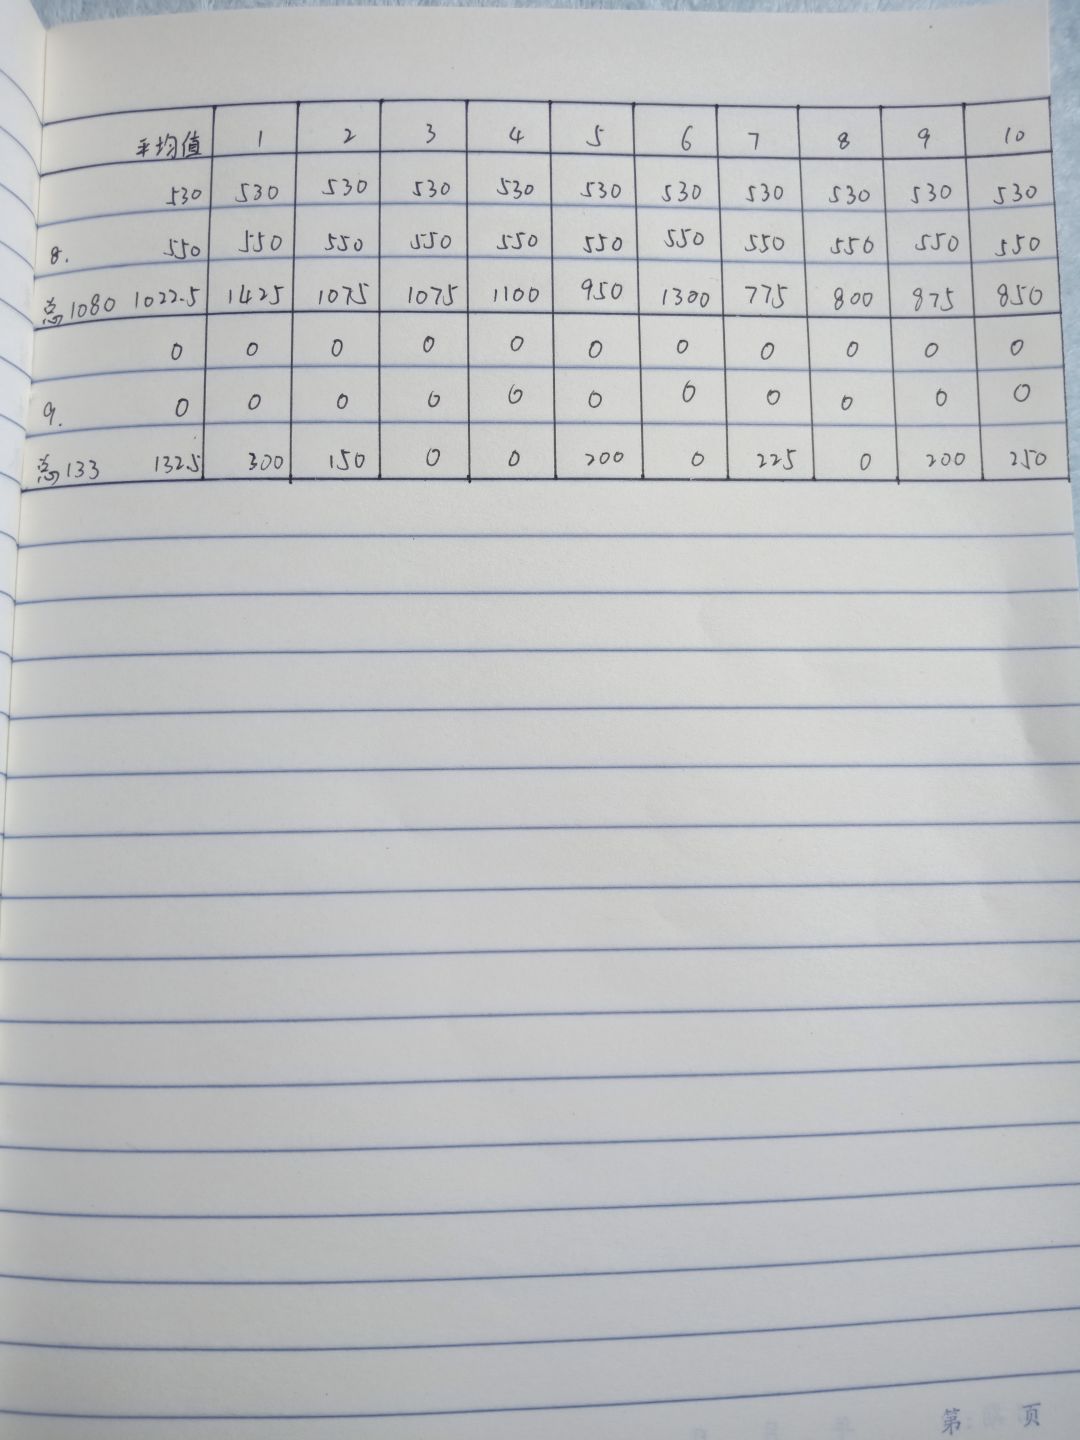 平均值 1 2 3 4 5 6 7 8 9 10
530 530 530 530 530 530 530 530 530 530 530
8. 550 550 550 550 550 550 550 550 550 550 550
总1080 1022.5 1425 1075 1075 1100 950 1300 775 800 875 850
0 0 0 0 0 0 0 0 0 0 0
9. 0 0 0 0 0 0 0 0 0 0 0
总133 132.5 300 150 0 0 200 0 225 0 200 250
第 页